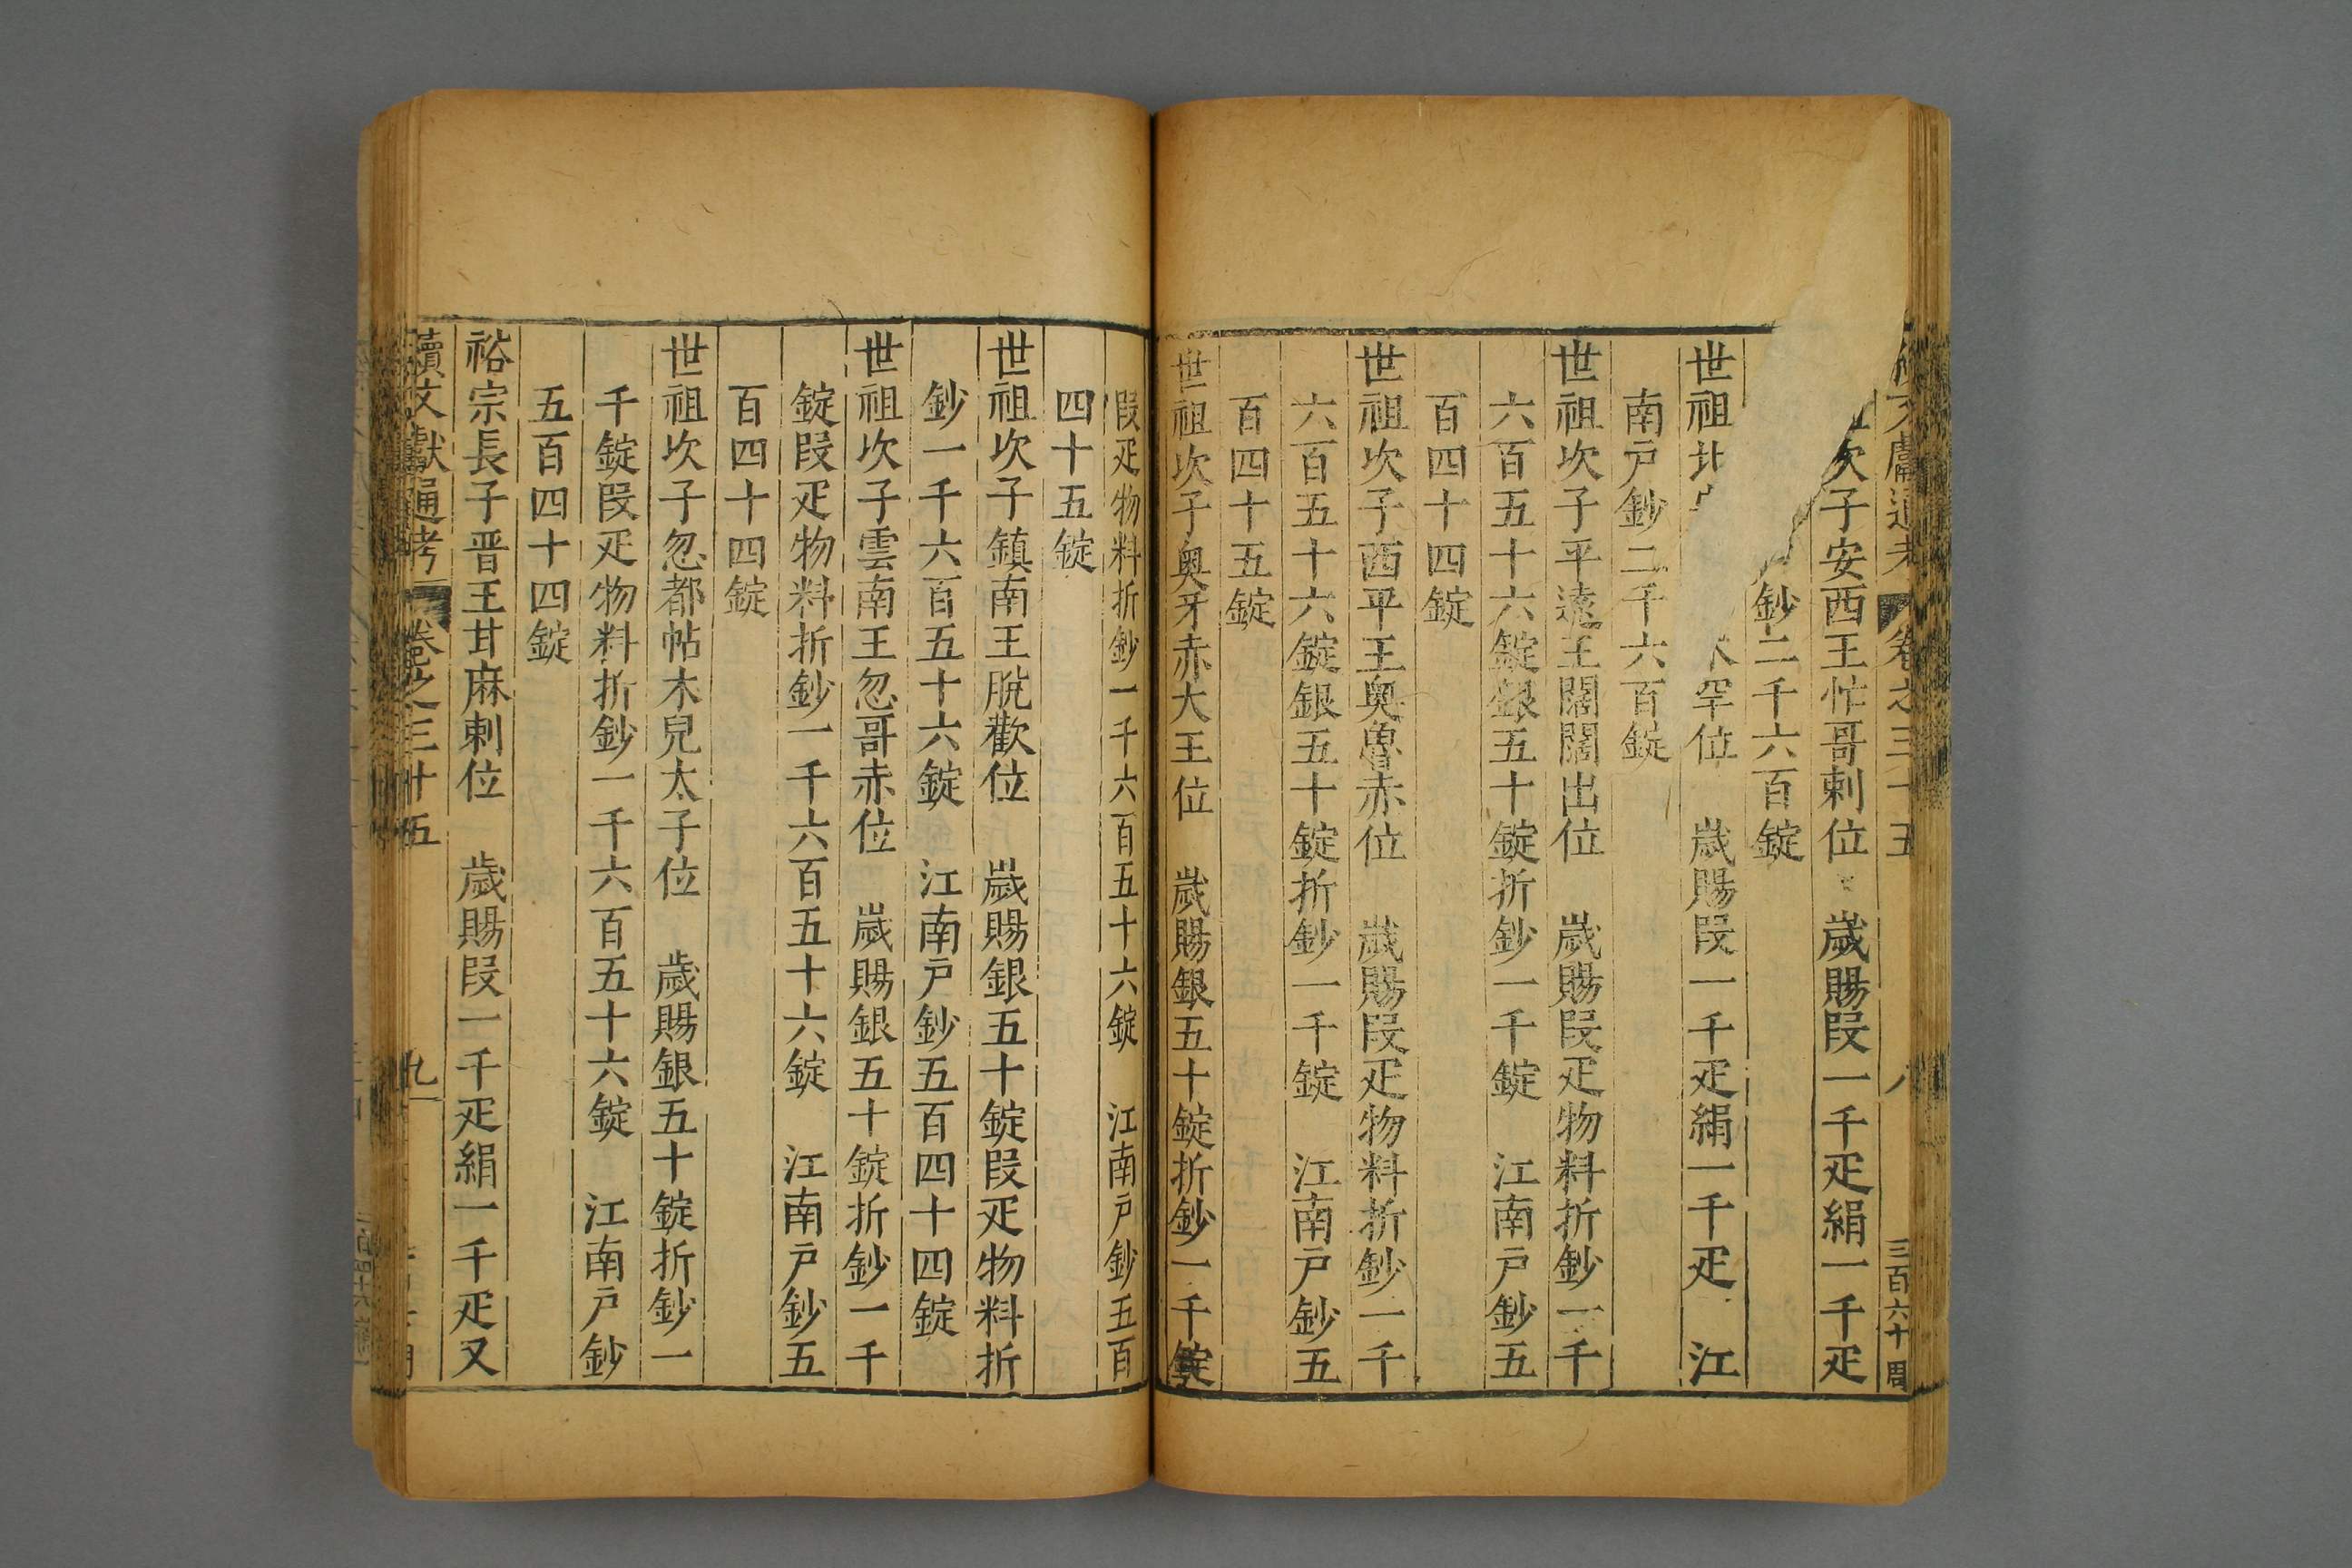 文獻通考 卷之三十五 八 三百六十
次子安西王忙哥剌位 歲賜段一千疋絹一千疋
鈔二千六百錠
世祖 罕位 歲賜段一千疋絹一千疋 江
南戶鈔二千六百錠
世祖次子平遠王闊闊出位 歲賜段疋物料折鈔一千
六百五十六錠銀五十錠折鈔一千錠 江南戶鈔五
百四十四錠
世祖次子西平王奧魯赤位 歲賜段疋物料折鈔一千
六百五十六錠銀五十錠折鈔一千錠 江南戶鈔五
百四十五錠
世祖次子奧牙赤大王位 歲賜銀五十錠折鈔一千錠
段疋物料折鈔一千六百五十六錠 江南戶鈔五百
四十五錠
世祖次子鎮南王脫歡位 歲賜銀五十錠段疋物料折
鈔一千六百五十六錠 江南戶鈔五百四十四錠
世祖次子雲南王忽哥赤位 歲賜銀五十錠折鈔一千
錠段疋物料折鈔一千六百五十六錠 江南戶鈔五
百四十四錠
世祖次子忽都帖木兒太子位 歲賜銀五十錠折鈔一
千錠段疋物料折鈔一千六百五十六錠 江南戶鈔
五百四十四錠
裕宗長子晋王甘麻剌位 歲賜段一千疋絹一千疋又
續文獻通考 卷之三十五 九